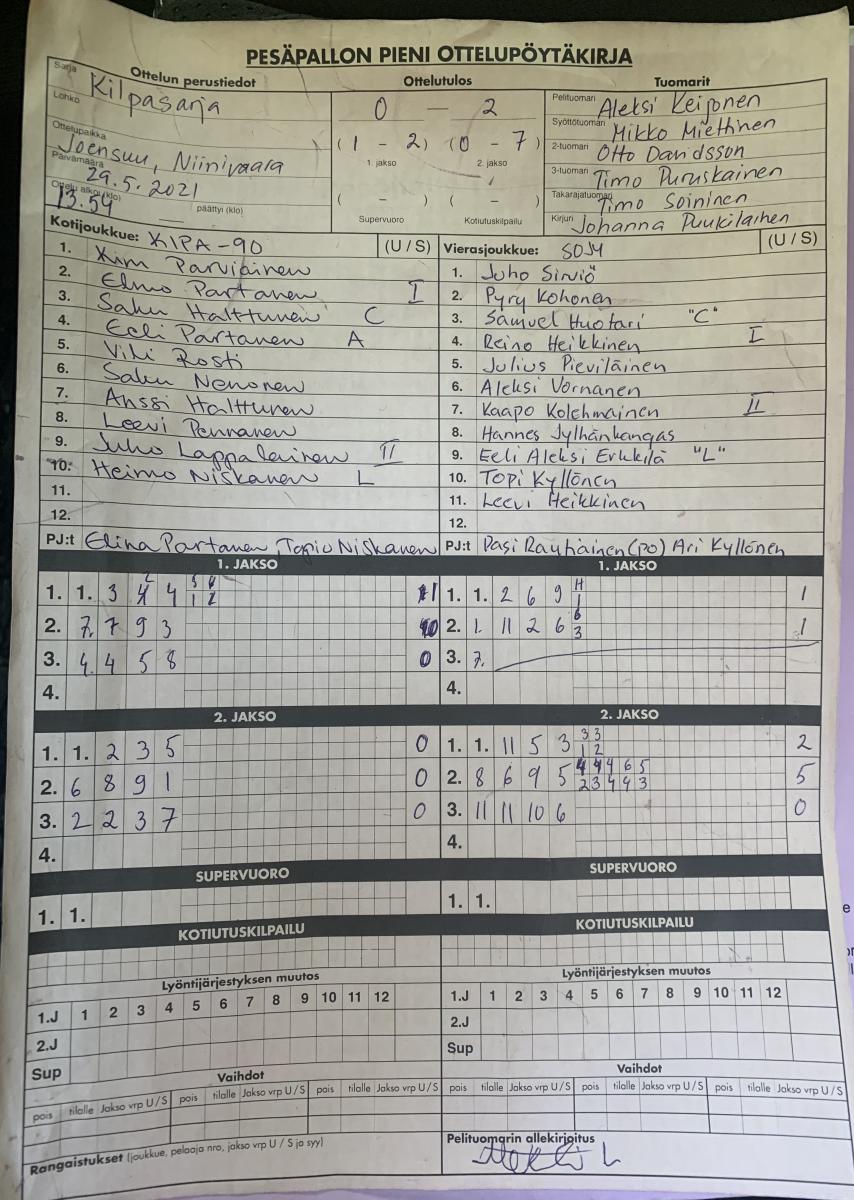 PESÄPALLON PIENI OTTELUPÖYTÄKIRJA
Sarja Ottelun perustiedot Ottelutulos Tuomarit
Kilpasarja
Lohko
0 - 2
Pelituomari Aleksi Keijonen
Syöttötuomari Mikko Miettinen
Ottelupaikka Joensuu, Niinivaara
(1 - 2) (0 - 7)
1. jakso 2. jakso
2-tuomari Otto Davidsson
Päivämäärä 29.5.2021
3-tuomari Timo Puruskainen
Ottelu alkoi (klo) 13.54 päättyi (klo)
( - ) ( - )
Supervuoro Kotiutuskilpailu
Takarajatuomari Timo Soininen
Kirjuri Johanna Puukilainen
Kotijoukkue: KIPA-90 (U / S)
1. Kim Parviainen
2. Elmo Partanen I
3. Saku Halttunen C
4. Eeli Partanen A
5. Vili Rosti
6. Saku Nenonen
7. Anssi Halttunen
8. Leevi Pennanen
9. Juho Lappalainen II
10. Heimo Niskanen L
11.
12.
PJ:t Elina Partanen, Topio Niskanen
Vierasjoukkue: SOJY (U / S)
1. Juho Sirviö
2. Pyry Kohonen
3. Samuel Huotari "C"
4. Reino Heikkinen I
5. Julius Pieviläinen
6. Aleksi Vornanen
7. Kaapo Kolehmainen II
8. Hannes Jylhänkangas
9. Eeli Aleksi Erkkilä "L"
10. Topi Kyllönen
11. Leevi Heikkinen
12.
PJ:t Pasi Rautiainen (PO) Ari Kyllönen
1. JAKSO
1. 1. 3 4 1
2. 7. 7 9 3 0
3. 4. 4 5 8 0
4.
1. JAKSO
1. 1. 2 6 9 H 1 1
2. 1. 11 2 6 6 3 1
3. 7.
4.
2. JAKSO
1. 1. 2 3 5 0
2. 6 8 9 1 0
3. 2 2 3 7 0
4.
2. JAKSO
3 3
1. 1. 11 5 3 1 2 2
4 4 4 6 5
2. 8 6 9 5 2 3 4 4 3 5
3. 11 11 10 6 0
4.
SUPERVUORO
1. 1.
SUPERVUORO
1. 1.
KOTIUTUSKILPAILU
KOTIUTUSKILPAILU
Lyöntijärjestyksen muutos
1.J 1 2 3 4 5 6 7 8 9 10 11 12
2.J
Sup
Lyöntijärjestyksen muutos
1.J 1 2 3 4 5 6 7 8 9 10 11 12
2.J
Sup
Vaihdot
pois tilalle Jakso vrp U / S pois tilalle Jakso vrp U / S pois tilalle Jakso vrp U / S
Vaihdot
pois tilalle Jakso vrp U / S pois tilalle Jakso vrp U / S pois tilalle Jakso vrp U / S
Rangaistukset (joukkue, pelaaja nro, jakso vrp U / S ja syy)
Pelituomarin allekirjoitus